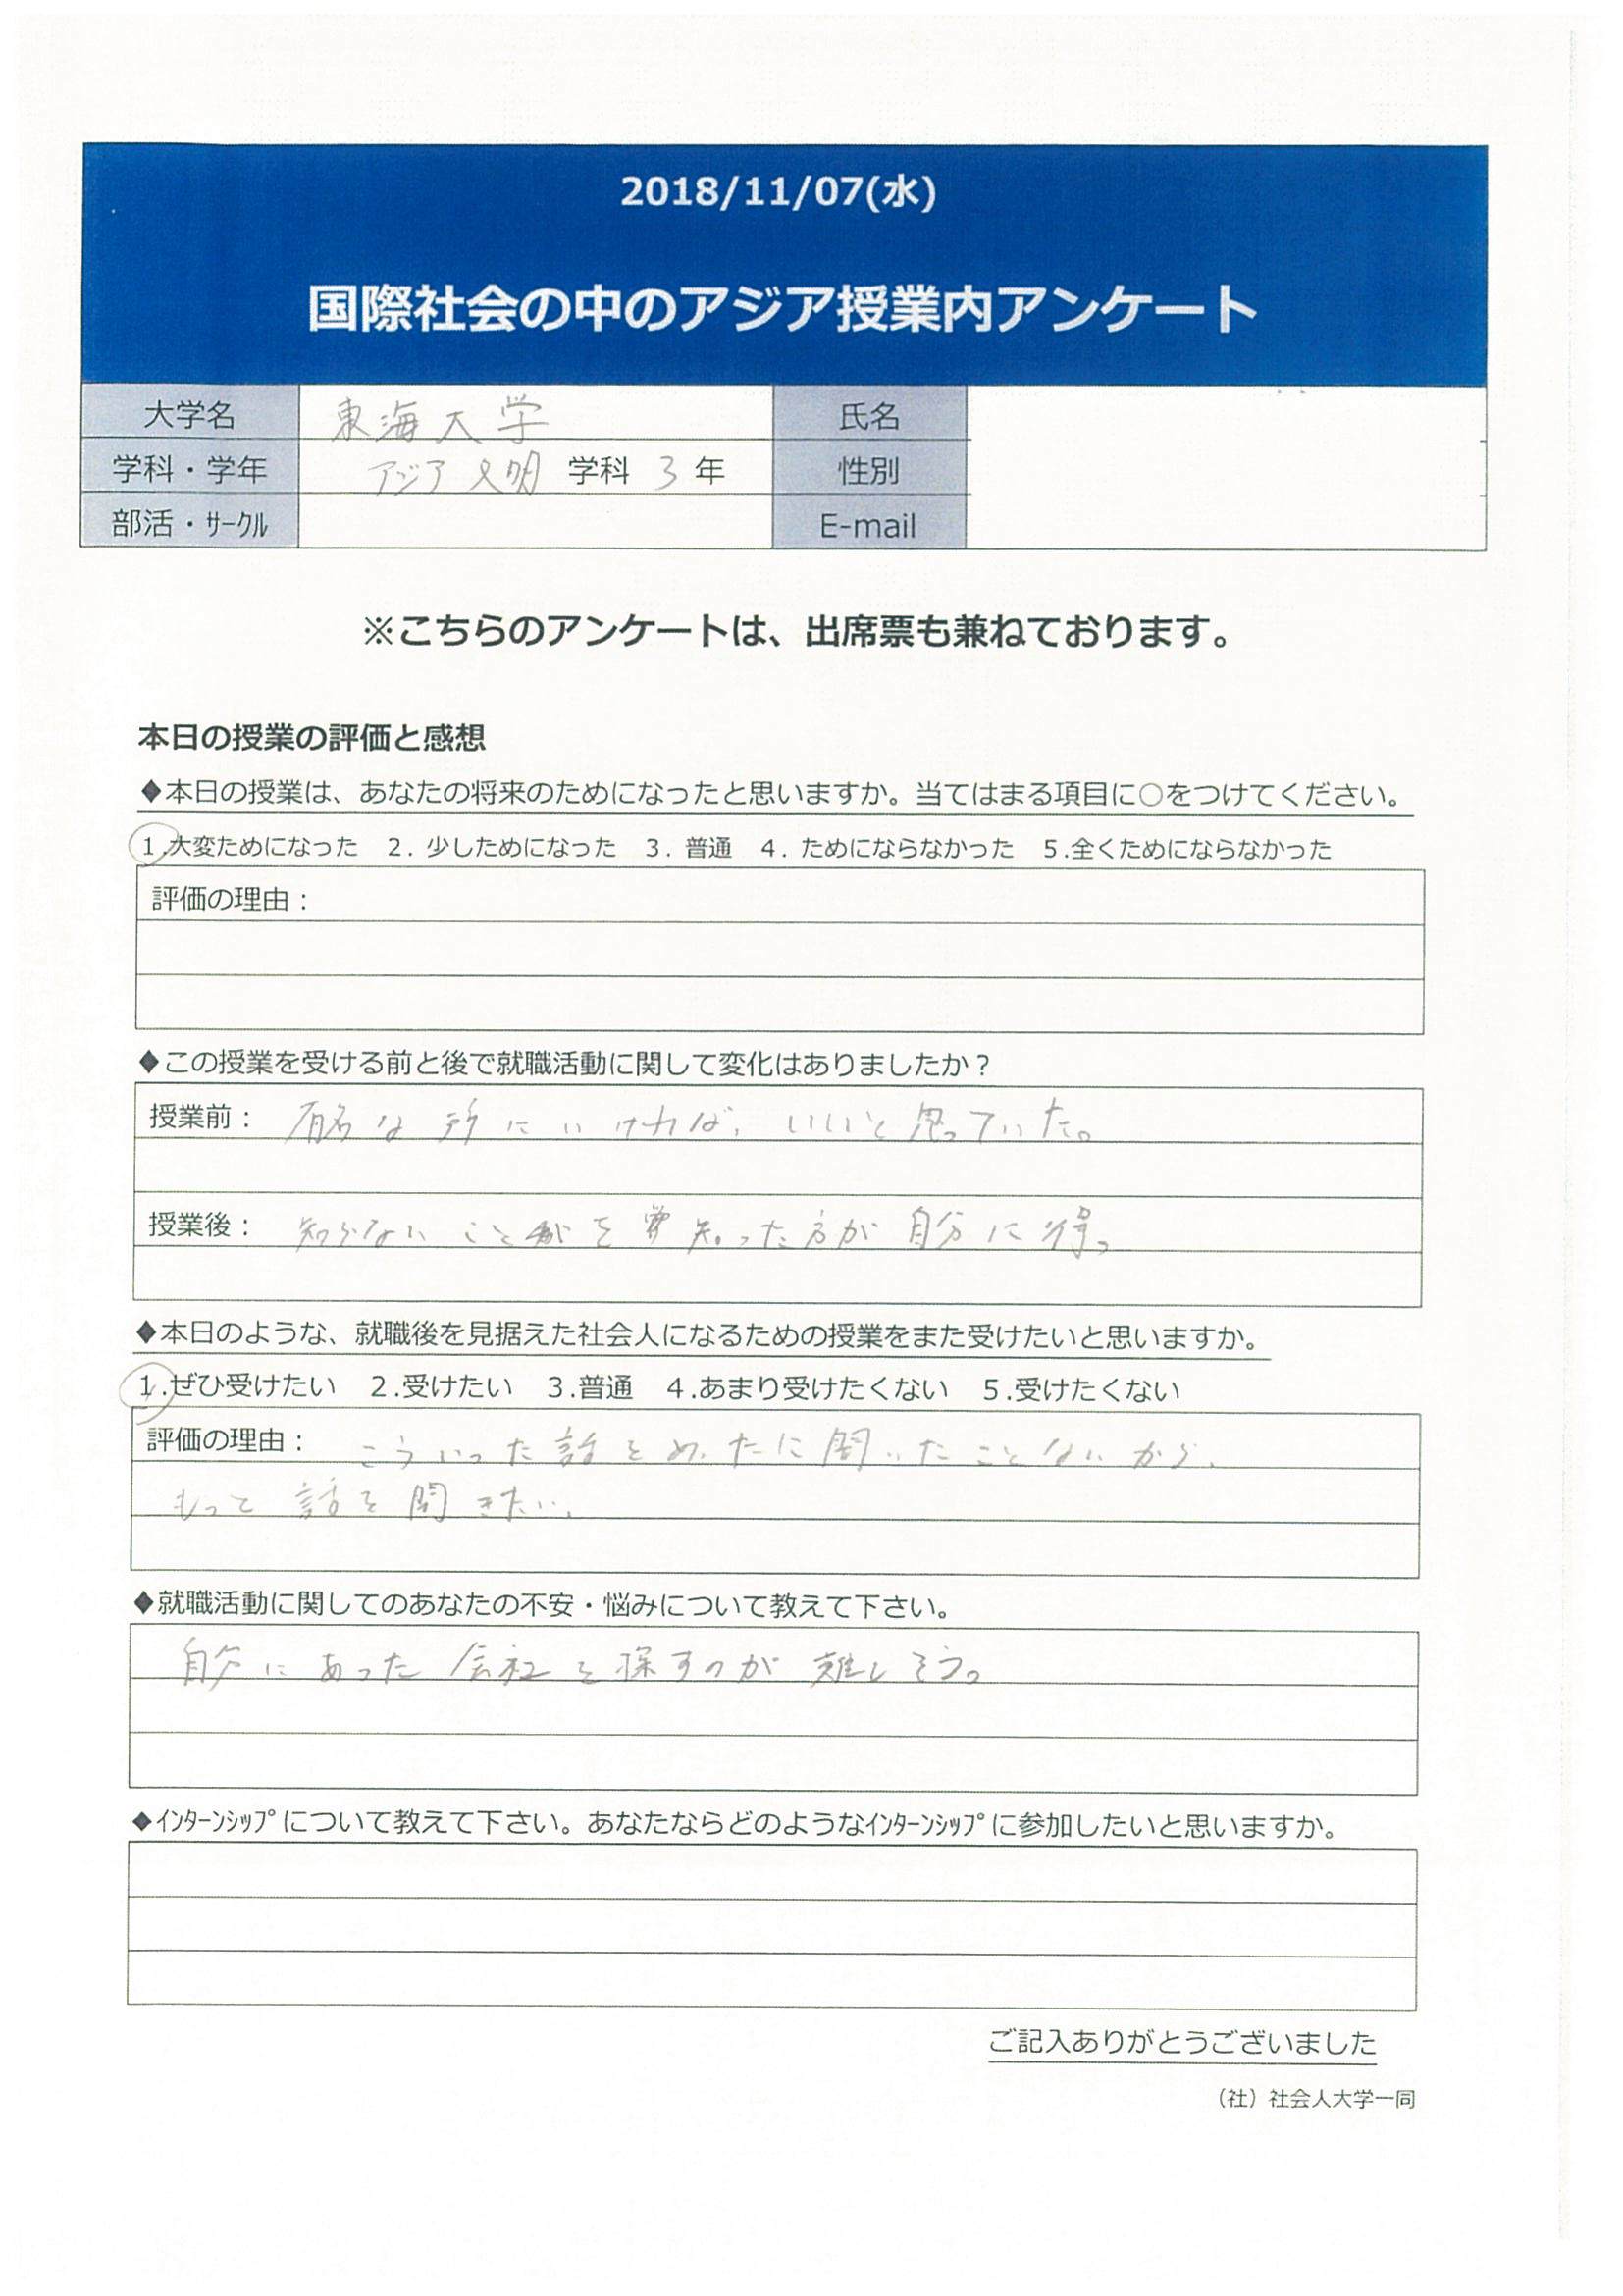 2018/11/07(水)
国際社会の中のアジア授業内アンケート
大学名 東海大学 氏名
学科・学年 アジア文明 学科 3 年 性別
部活・ｻｰｸﾙ E-mail
※こちらのアンケートは、出席票も兼ねております。
本日の授業の評価と感想
◆本日の授業は、あなたの将来のためになったと思いますか。当てはまる項目に○をつけてください。
1.大変ためになった 2. 少しためになった 3. 普通 4. ためにならなかった 5.全くためにならなかった
評価の理由：
◆この授業を受ける前と後で就職活動に関して変化はありましたか？
授業前： 有名な所にいければ、いいと思っていた。
授業後： 知らないことを知った方が自分に得。
◆本日のような、就職後を見据えた社会人になるための授業をまた受けたいと思いますか。
1.ぜひ受けたい 2.受けたい 3.普通 4.あまり受けたくない 5.受けたくない
評価の理由： こういった話をめったに聞いたことないから、
もって話を聞きたい。
◆就職活動に関してのあなたの不安・悩みについて教えて下さい。
自分にあった会社を探すのが難しそう。
◆ｲﾝﾀｰﾝｼｯﾌﾟについて教えて下さい。あなたならどのようなｲﾝﾀｰﾝｼｯﾌﾟに参加したいと思いますか。
ご記入ありがとうございました
（社）社会人大学一同